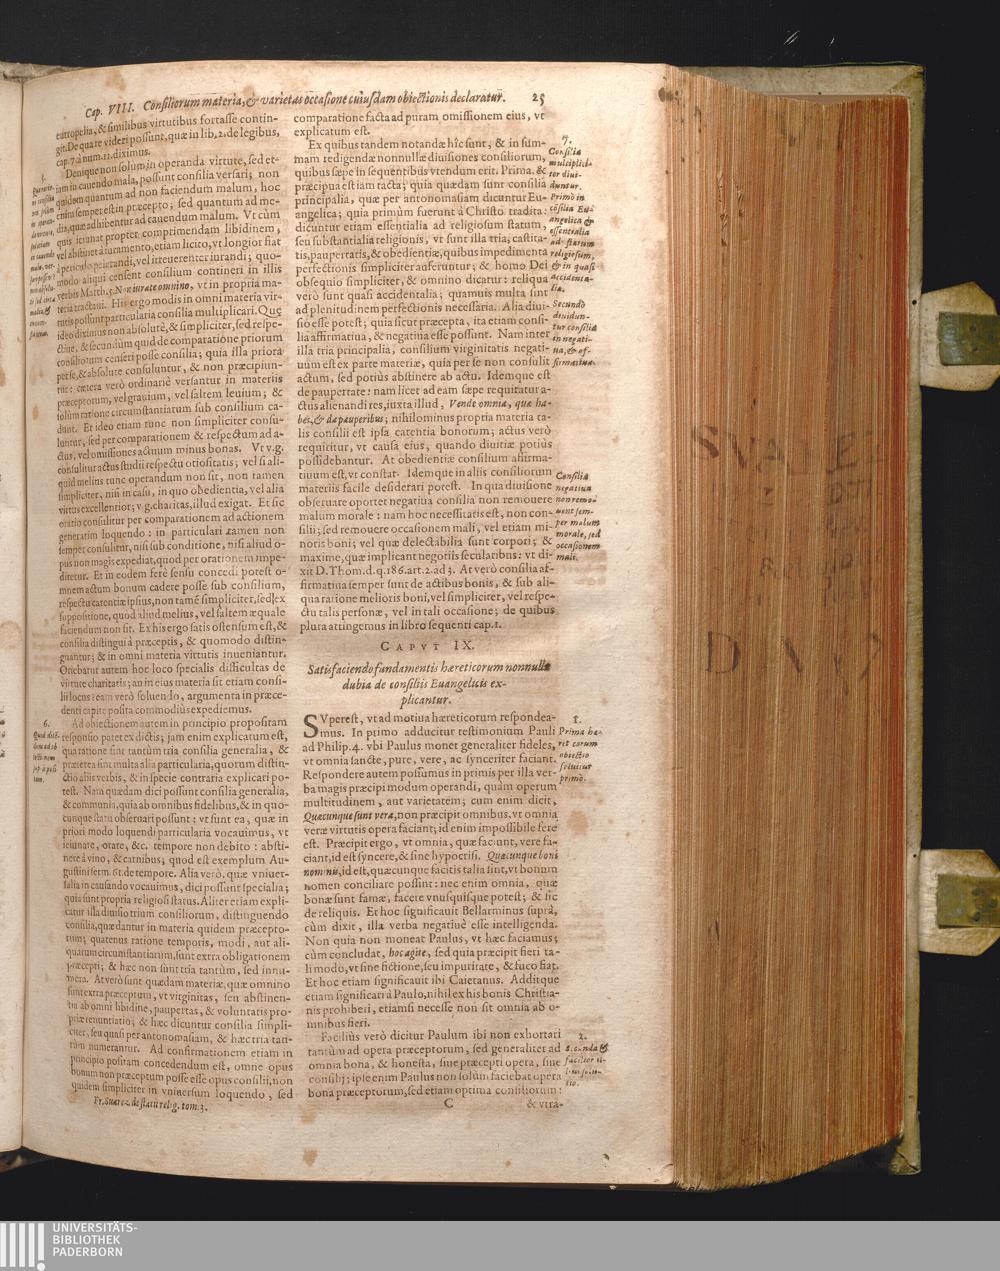 Cap. VIII. Consiliorum materia, & varietas occasione cuiusdam obiectionis declaratur. 25
eutropelia, & similibus virtutibus fortasse contin-
git. De qua re videri possunt, quæ in lib. 2. de legibus,
cap. 7. à num. 11. diximus.
Denique non solum in operanda virtute, sed et-
iam in cauendo mala, possunt consilia versari, non
quidem quantum ad non faciendum malum, hoc
enim semper est in præcepto; sed quantum ad me-
dia, quæ adhibentur ad cauendum malum. Vt cùm
quis ieiunat propter comprimendam libidinem,
vel abstinet à iuramento, etiam licito, vt longior fiat
à periculo peierandi, vel irreuerenter iurandi; quo-
modo aliqui censent consilium contineri in illis
verbis Matth. 5. Non iurate omnino, vt in propria ma-
teria tractaui. His ergo modis in omni materia vir-
tutis possunt particularia consilia multiplicari. Quę
ideo diximus non absolutè, & simpliciter, sed respe-
ctiue, & secundùm quid de comparatione priorum
consiliorum censeri posse consilia; quia illa priora
per se, & absolute consuluntur, & non præcipiun-
tur: cætera verò ordinariè versantur in materiis
præceptorum, vel grauium, vel saltem leuium; &
solùm ratione circumstantiarum sub consilium ca-
dunt. Et ideo etiam tunc non simpliciter consu-
luntur, sed per comparationem & respectum ad a-
ctus, vel omissiones actuum minus bonas. Vt v.g.
consulitur actus studii respectu otiositatis; vel si ali-
quid melius tunc operandum non sit, non tamen
simpliciter, nisi in casu, in quo obedientia, vel alia
virtus excellentior; v.g. charitas, illud exigat. Et sic
oratio consulitur per comparationem ad actionem
generatim loquendo: in particulari tamen non
semper consulitur, nisi sub conditione, nisi aliud o-
pus non magis expediat, quod per orationem impe-
diretur. Et in eodem ferè sensu concedi potest o-
mnem actum bonum cadere posse sub consilium,
respectu carentiæ ipsius, non tamē simpliciter, sed ex
suppositione, quod aliud melius, vel saltem æquale
faciendum non sit. Ex his ergo satis ostensum est, &
consilia distingui à præceptis, & quomodo distin-
guantur; & in omni materia virtutis inueniantur.
Oriebatur autem hoc loco specialis difficultas de
virtute charitatis; an in eius materia sit etiam consi-
lii locus: eam verò soluendo, argumenta in præce-
denti capite posita commodiùs expediemus.
6.
Ad obiectionem autem in principio propositam
responsio patet ex dictis; jam enim explicatum est,
qua ratione sint tantùm tria consilia generalia, &
præterea sint multa alia particularia, quorum distin-
ctio aliis verbis, & in specie contraria explicari po-
test. Nam quædam dici possunt consilia generalia,
& communia, quia ab omnibus fidelibus, & in quo-
cunque statu obseruari possunt: vt sunt ea, quæ in
priori modo loquendi particularia vocauimus, vt
ieiunare, orare, &c. tempore non debito: absti-
nere à vino, & carnibus; quod est exemplum Au-
gustini serm. 61. de tempore. Alia verò, quæ vniuer-
salia in causando vocauimus, dici possunt specialia;
quia sunt propria religiosi status. Aliter etiam expli-
catur illa diuisio trium consiliorum, distinguendo
consilia, quæ dantur in materia quidem præcepto-
rum; quatenus ratione temporis, modi, aut ali-
quarum circumstantiarum, sunt extra obligationem
præcepti; & hæc non sunt tria tantùm, sed innu-
mera. At verò sunt quædam materiæ, quæ omnino
sunt extra præceptum, vt virginitas, seu abstinen-
tia ab omni libidine, paupertas, & voluntatis pro-
priæ renuntiatio; & hæc dicuntur consilia simpli-
citer, seu quasi per antonomasiam, & hæc tria tan-
tùm numerantur. Ad confirmationem etiam in
principio positam concedendum est, omne opus
bonum non præceptum posse esse opus consilii, non
quidem simpliciter in vniuersum loquendo, sed
Fr. Suarez de statu relig. tom. 3.
comparatione facta ad puram omissionem eius, vt
explicatum est.
Ex quibus tandem notandæ hîc sunt, & in sum-
mam redigendæ nonnullæ diuisiones consiliorum,
quibus sæpe in sequentibus vtendum erit. Prima, &
præcipua est iam tacta; quia quædam sunt consilia
principalia, quæ per antonomasiam dicuntur Eu-
angelica; quia primùm fuerunt à Christo tradita:
dicuntur etiam essentialia ad religiosum statum,
seu substantialia religionis, vt sunt illa tria; castita-
tis, paupertatis, & obedientiæ, quibus impedimenta
perfectionis simpliciter auferuntur; & homo Dei
obsequio simpliciter, & omnino dicatur: reliqua
verò sunt quasi accidentalia; quamuis multa sint
ad plenitudinem perfectionis necessaria. Alia diui-
sio esse potest; quia sicut præcepta, ita etiam consi-
lia affirmatiua, & negatiua esse possunt. Nam inter
illa tria principalia, consilium virginitatis negati-
uum est ex parte materiæ, quia per se non consulit
actum, sed potiùs abstinere ab actu. Idemque est
de paupertate: nam licet ad eam sæpe requiratur a-
ctus alienandi res, iuxta illud, Vende omnia, quæ ha-
bes, & da pauperibus; nihilominus propria materia ta-
lis consilii est ipsa carentia bonorum; actus verò
requiritur, vt causa eius, quando diuitiæ potiùs
possidebantur. At obedientiæ consilium affirma-
tiuum est, vt constat. Idemque in aliis consiliorum
materiis facile desiderari potest. In qua diuisione
obseruare oportet negatiua consilia non remouere
malum morale: nam hoc necessitatis est, non con-
silii; sed remouere occasionem mali, vel etiam mi-
noris boni; vel quæ delectabilia sunt corpori; &
maxime, quæ implicant negotiis secularibus: vt di-
xit D. Thom. d. q. 186. art. 2. ad 3. At verò consilia af-
firmatiua semper sunt de actibus bonis, & sub ali-
qua ratione melioris boni, vel simpliciter, vel respe-
ctu talis personæ, vel in tali occasione; de quibus
plura attingemus in libro sequenti cap. 1.
7.
Consilia
multiplici-
ter diui-
duntur.
Primò in
cōsilia Eu-
angelica &
essentialia
ad statum
religiosum,
& in quasi
accidenta-
lia.
Secundò
diuidun-
tur consilia
in negati-
ua, & af-
firmatiua.
Consilia
negatiua
non remo-
uent sem-
per malum
morale, sed
occasionem
mali.
CAPVT IX.
Satisfaciendo fundamentis hæreticorum nonnulla
dubia de consiliis Euangelicis ex-
plicantur.
SVperest, vt ad motiua hæreticorum respondea-
mus. In primo adducitur testimonium Pauli
ad Philip. 4. vbi Paulus monet generaliter fideles,
vt omnia sancte, pure, vere, ac synceriter faciant.
Respondere autem possumus in primis per illa ver-
ba magis præcipi modum operandi, quàm operum
multitudinem, aut varietatem; cum enim dicit,
Quæcunque sunt vera, non præcipit omnibus, vt omnia
veræ virtutis opera faciant; id enim impossibile fere
est. Præcipit ergo, vt omnia, quæ faciunt, vere fa-
ciant, id est syncere, & sine hypocrisi. Quæcunque boni
nominis, id est, quæcunque facitis talia sint, vt bonum
nomen conciliare possint: nec enim omnia, quæ
bonæ sunt famæ, facere vnusquisque potest; & sic
de reliquis. Et hoc significauit Bellarminus suprà,
cùm dixit, illa verba negatiuè esse intelligenda.
Non quia non moneat Paulus, vt hæc faciamus;
cùm concludat, hoc agite, sed quia præcipit fieri ta-
li modo, vt sine fictione, seu impuritate, & fuco fiat.
Et hoc etiam significauit ibi Caietanus. Additque
etiam significari à Paulo, nihil ex his bonis Christia-
nis prohiberi, etiamsi necesse non sit omnia ab o-
mnibus fieri.
Faciliùs verò dicitur Paulum ibi non exhortari
tantùm ad opera præceptorum, sed generaliter ad
omnia bona, & honesta, siue præcepti opera, siue
consilij; ipse enim Paulus non solùm faciebat opera
bona præceptorum, sed etiam optima consiliorum:
C & vtra-
1.
Prima hæ-
reticorum
obiectio
soluitur
primò.
2.
Secunda &
facilior il-
lius solu-
tio.
UNIVERSITÄTS-
BIBLIOTHEK
PADERBORN